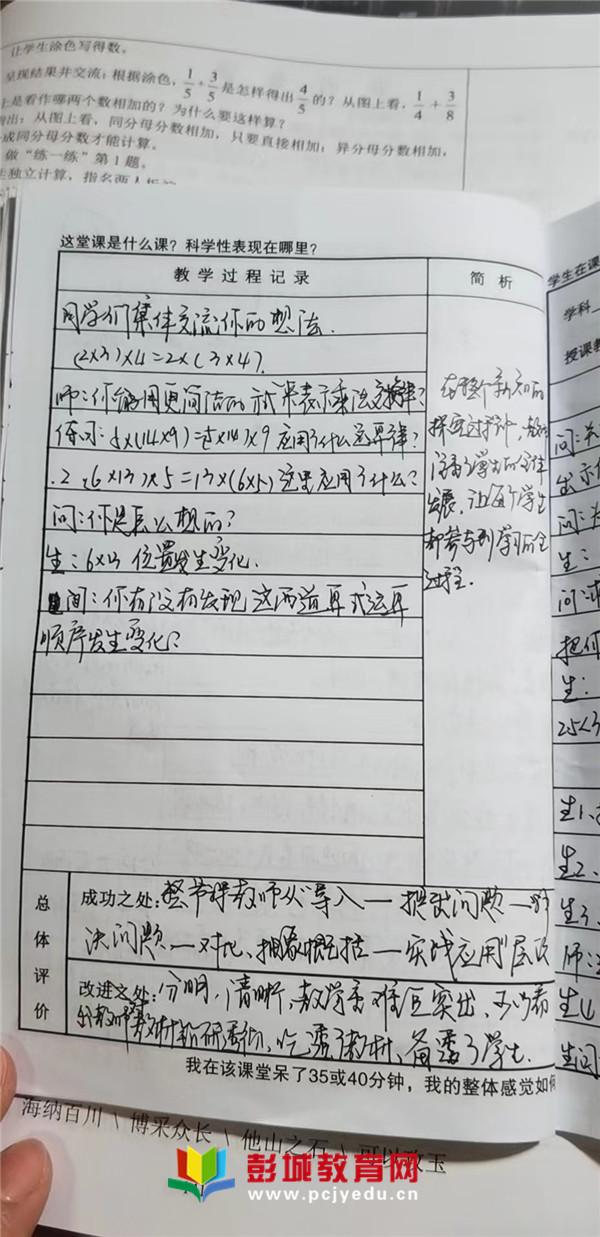 让学生涂色写得数。
呈现结果并交流:根据涂色,1/5+3/5是怎样得出4/5的?从图上看,1/4+3/8
上是看作哪两个数相加的?为什么要这样算?
得出:从图上看,同分母分数相加,只要直接相加;异分母分数相加,
成同分母分数才能计算。
做“练一练”第1题。
独立计算,指名两人板
这堂课是什么课?科学性表现在哪里?
教学过程记录
简析
同学们集体交流你的想法.
(2×3)×4=2×(3×4).
师:你能用更简洁的式子来表示乘法交换律?
练习:(14×9)=×14)×9应用了什么运算律?
.2(6×13)×5=13×(6×5)这里应用了什么?
问:你是怎么想的?
生:6×13位置发生变化.
问:你有没有发现这两道算式运算
顺序发生变化?
在整个新知的
探究过程中,教师
注重了学生的全体
发展,让每个学生
都参与到学习的全
过程.
总体评价
成功之处:整节课教师从“导入—提出问题—解
决问题—对比、抽象概括—实践应用”层次
改进之处:分明,清晰,教学重难点突出,可以看
出教师教材钻研透彻,吃透了教材、备透了学生.
我在该课堂呆了35或40分钟,我的整体感觉如何
海纳百川\博采众长\他山之石\可以攻玉
学生在课
学科
授课教
问:
生:
问:
把何
生:
25<3
生1、
生2、
生3、
师:
生4
生问
彭城教育网
www.pcjyedu.cn